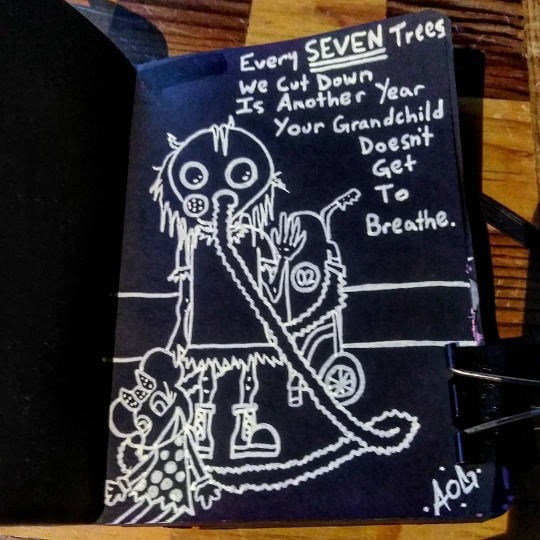 Every SEVEN Trees
We Cut Down
Is Another Year
Your Grandchild
Doesn't
Get
To
Breathe.
O2
.AOG.